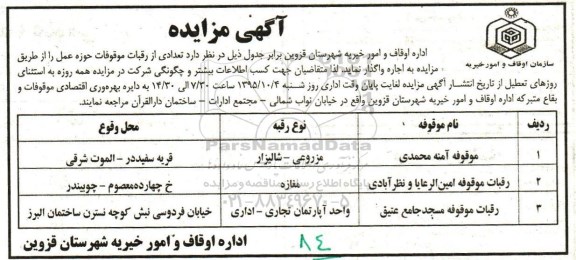 آگهی مزایده
سازمان اوقاف و امور خیریه
اداره اوقاف و امور خیریه شهرستان قزوین برابر جدول ذیل در نظر دارد تعدادی از رقبات موقوفات حوزه عمل را از طریق
مزایده به اجاره واگذار نماید. لذا متقاضیان جهت کسب اطلاعات بیشتر و چگونگی شرکت در مزایده همه روزه به استثنای
روزهای تعطیل از تاریخ انتشار آگهی مزایده لغایت پایان وقت اداری روز شنبه ۱۳۹۵/۱۰/۴ ساعت ۷/۳۰ الی ۱۴/۳۰ به دایره بهره‌وری اقتصادی موقوفات و
بقاع متبرکه اداره اوقاف و امور خیریه شهرستان قزوین واقع در خیابان نواب شمالی - مجتمع ادارات - ساختمان دارالقرآن مراجعه نمایند.
ردیف نام موقوفه نوع رقبه محل وقوع
۱ موقوفه آمنه محمدی مزروعی - شالیزار قریه سفیددر - الموت شرقی
۲ رقبات موقوفه امین‌الرعایا و نظرآبادی مغازه خ چهارده‌معصوم - چوبیندر
۳ رقبات موقوفه مسجدجامع عتیق واحد آپارتمان تجاری - اداری خیابان فردوسی نبش کوچه نسترن ساختمان البرز
پایگاه اطلاع رسانی مناقصه و مزایده
۰۲۱-۸۸۳۴۹۶۷۰-۵
اداره اوقاف و امور خیریه شهرستان قزوین
۸۴